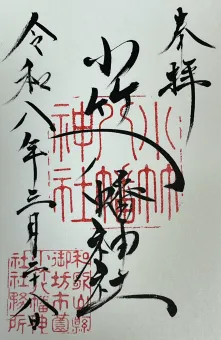 奉拝
小竹八幡神社
令和八年三月二十八日
小竹
八幡
神社
和歌山縣
御坊市薗
小竹八幡神
社社務所